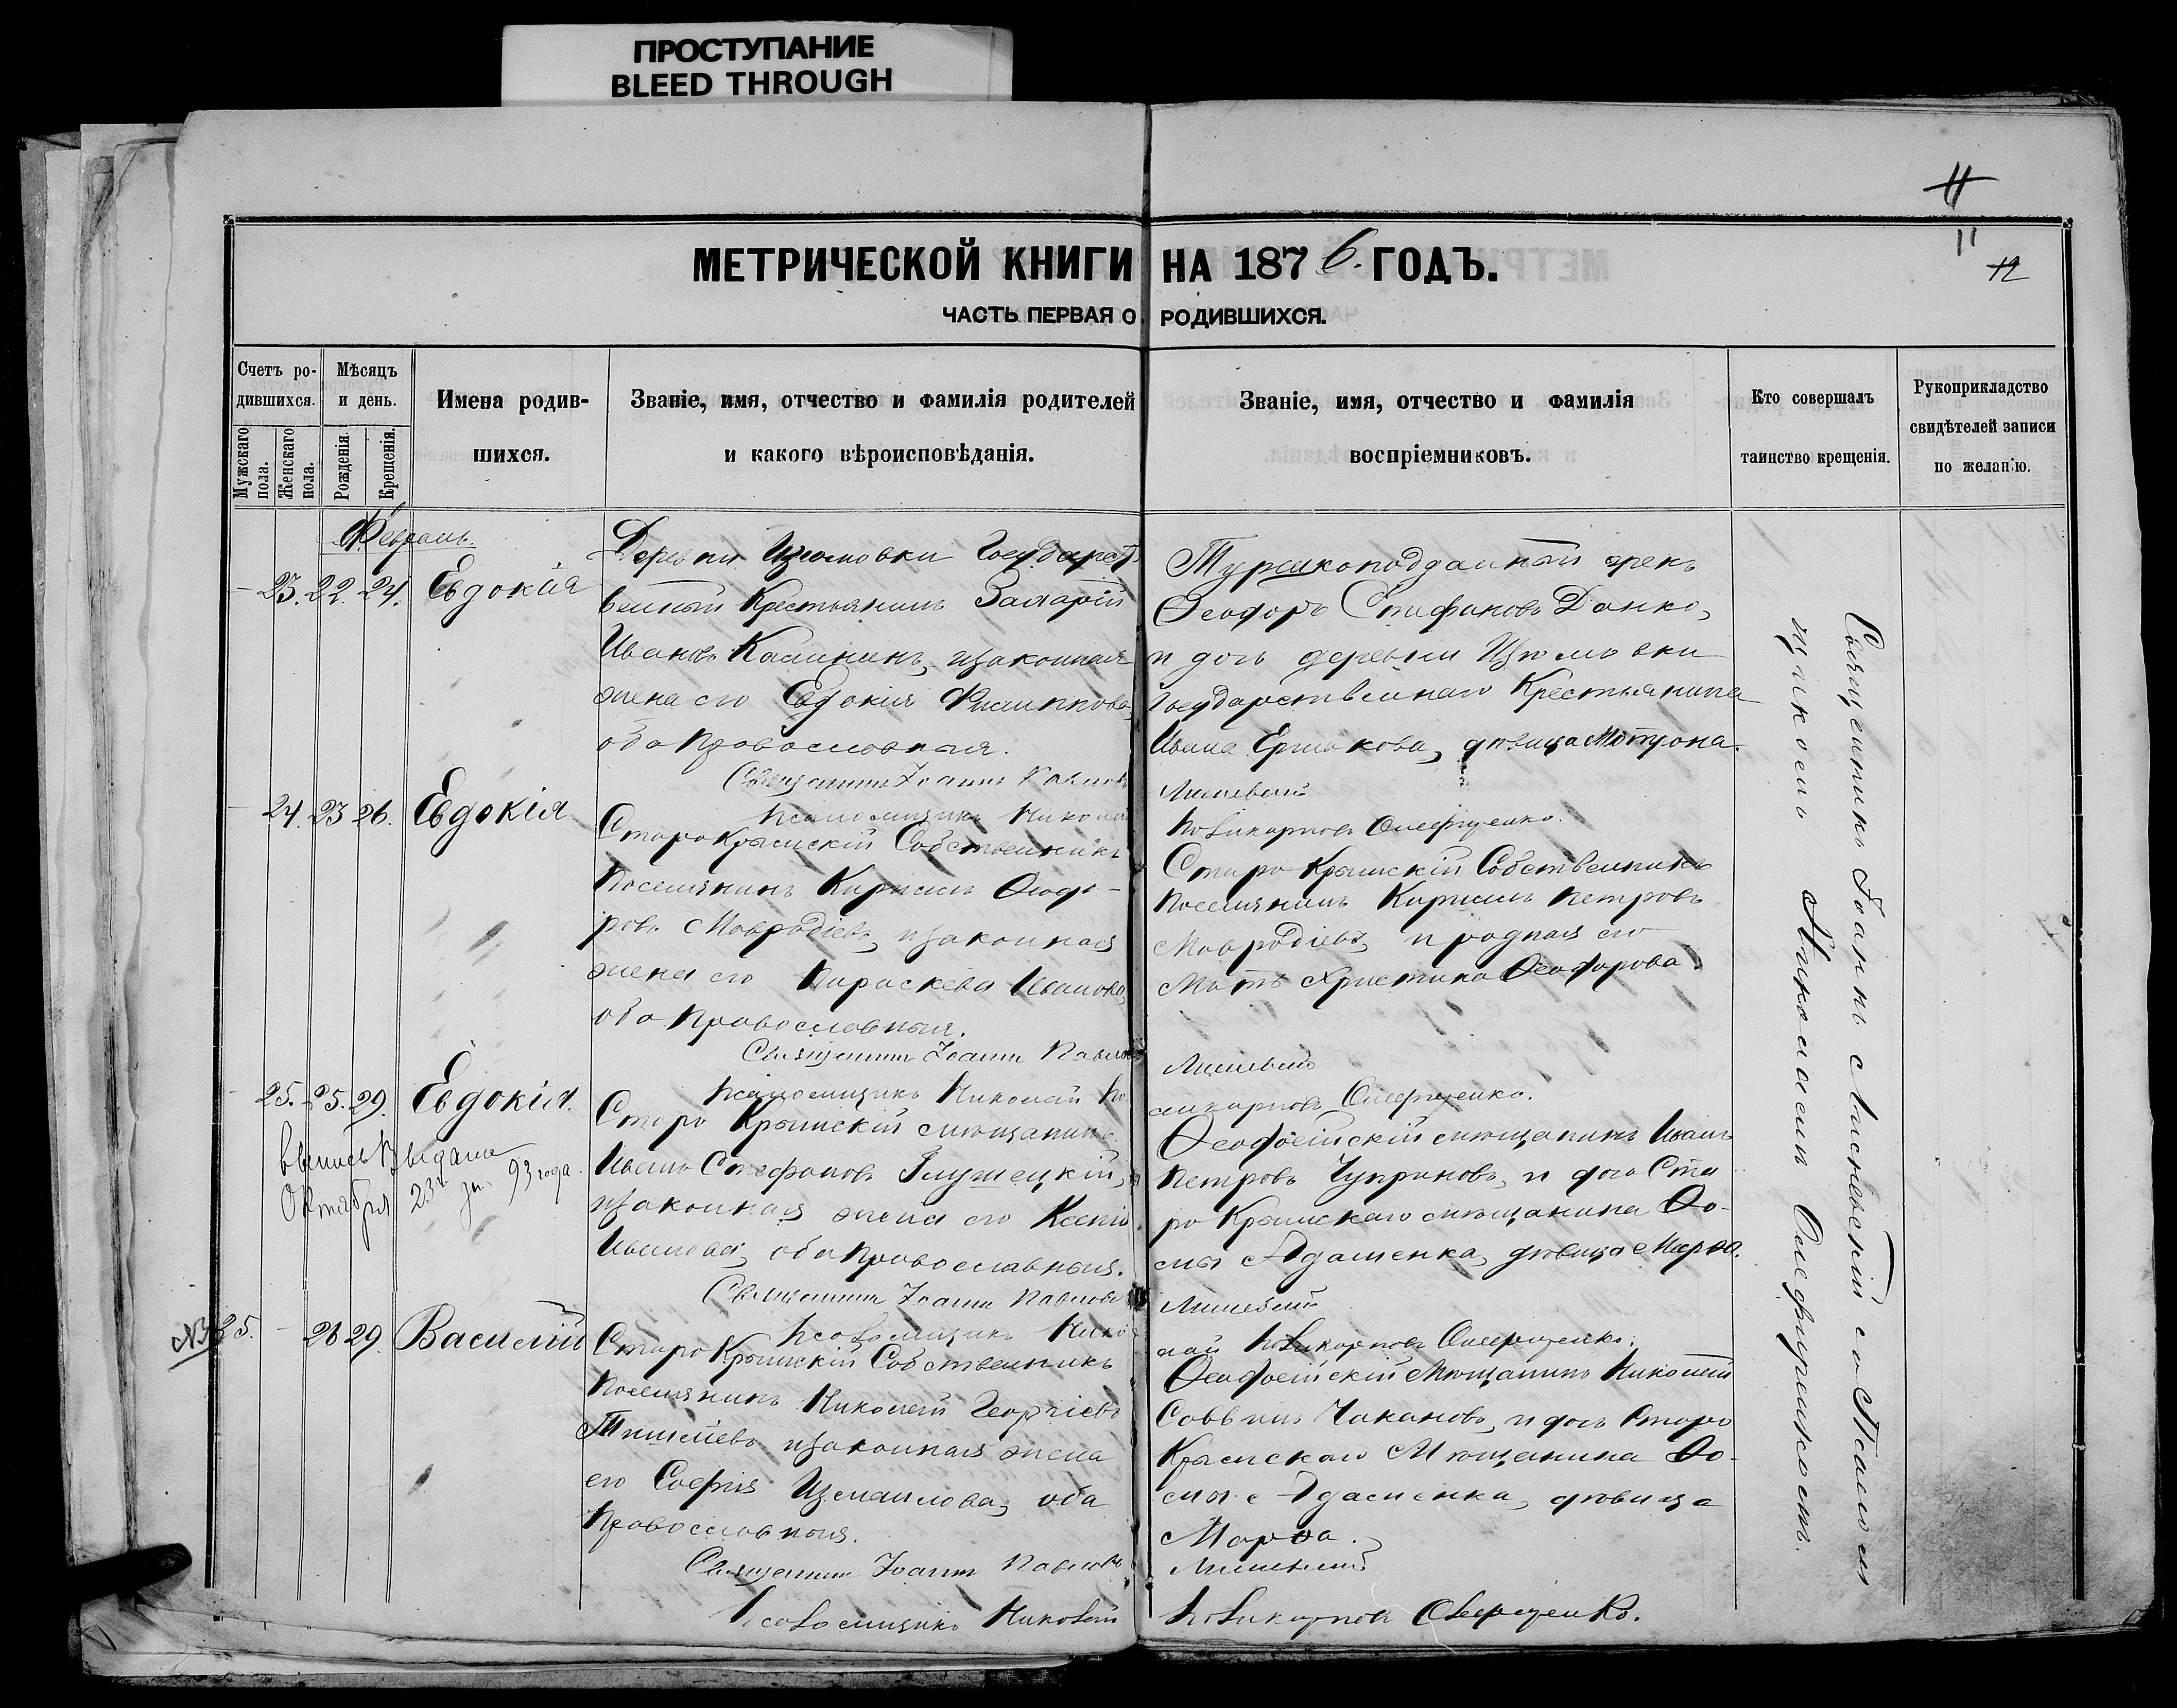 ПРОСТУПАНИЕ
BLEED THROUGH
11
11
12
МЕТРИЧЕСКОЙ КНИГИ НА 1876. ГОДЪ.
ЧАСТЬ ПЕРВАЯ О РОДИВШИХСЯ.
Счетъ ро-
дившихся.
Мужскаго пола.
Женскаго пола.
Мѣсяцъ
и день.
Рожденія.
Крещенія.
Имена родив-
шихся.
Званіе, имя, отчество и фамилія родителей
и какого вѣроисповѣданія.
Званіе, имя, отчество и фамилія
воспріемниковъ.
Кто совершалъ
таинство крещенія.
Рукоприкладство
свидѣтелей записи
по желанію.
Февраль.
23. 22. 24. Евдокія
Деревни Изюмовки Государст-
венный Крестьянинъ
Ивановъ Калининъ, и законная
жена его Евдокія Филиппова,
оба православныя.
Священникъ Іоаннъ Павловъ
Псаломщикъ Николай
Турецкоподданный грекъ
Ѳеодоръ Стефановъ Данко,
и дочь деревни Изюмовки
Государственнаго Крестьянина
Ивана Ермакова, дѣвица Матрона.
Поликарповъ
24. 23 26. Евдокія
Старокрымскій Собственникъ
Поселянинъ Кириллъ Ѳеодо-
ровъ Мавродіевъ, и законная
жена его Параскева Иванова,
оба православныя.
Священникъ Іоаннъ Павловъ
Псаломщикъ Николай По
Старо Крымскій Собственникъ
Поселянинъ Кириллъ Петровъ
Мавродіевъ, и родная его
Мать Христина Ѳеодорова.
ликарповъ
25. 25. 29. Евдокія.
Выпись выдана
Октября 23 дня 93 года.
Старо Крымскій мѣщанинъ
Иванъ Стефановъ Глушецкій,
и законная жена его Ксенія
Иванова, оба православныя.
Священникъ Іоаннъ Павловъ
Псаломщикъ Нико
Ѳеодосійскій мѣщанинъ Иванъ
Петровъ Чуприновъ, и дочь Ста
ро Крымскаго мѣщанина Ѳо-
мы Адаменка, дѣвица Марѳа.
лай Поликарповъ
№ 25. 28 29. Василій
Старо Крымскій Собственникъ
Поселянинъ Николай Георгіевъ
и законная жена
его Софія Измаилова, оба
Православныя.
Священникъ Іоаннъ Павловъ
Псаломщикъ Николай
Ѳеодосійскій Мѣщанинъ Николай
Саввинъ Чакановъ, и дочь Старо
Крымскаго Мѣщанина Ѳо-
мы Адаменка, дѣвица
Марѳа.
Поликарповъ
Священникъ Іоаннъ с Псалом
щикомъ Николаемъ